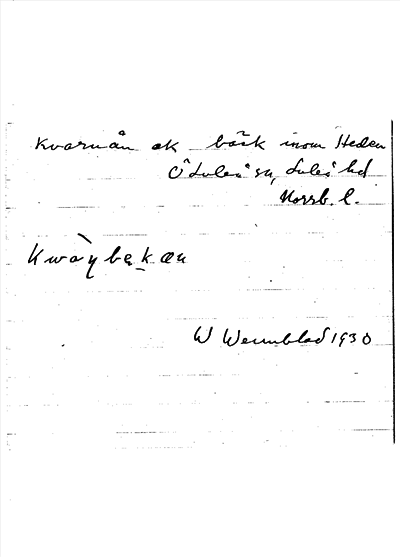 Kvarnån ok bäck inom Heden
Ö Luleå sn, Luleå hd
Norrb. l.
Kwàrbękæn
W Wennblad 1930